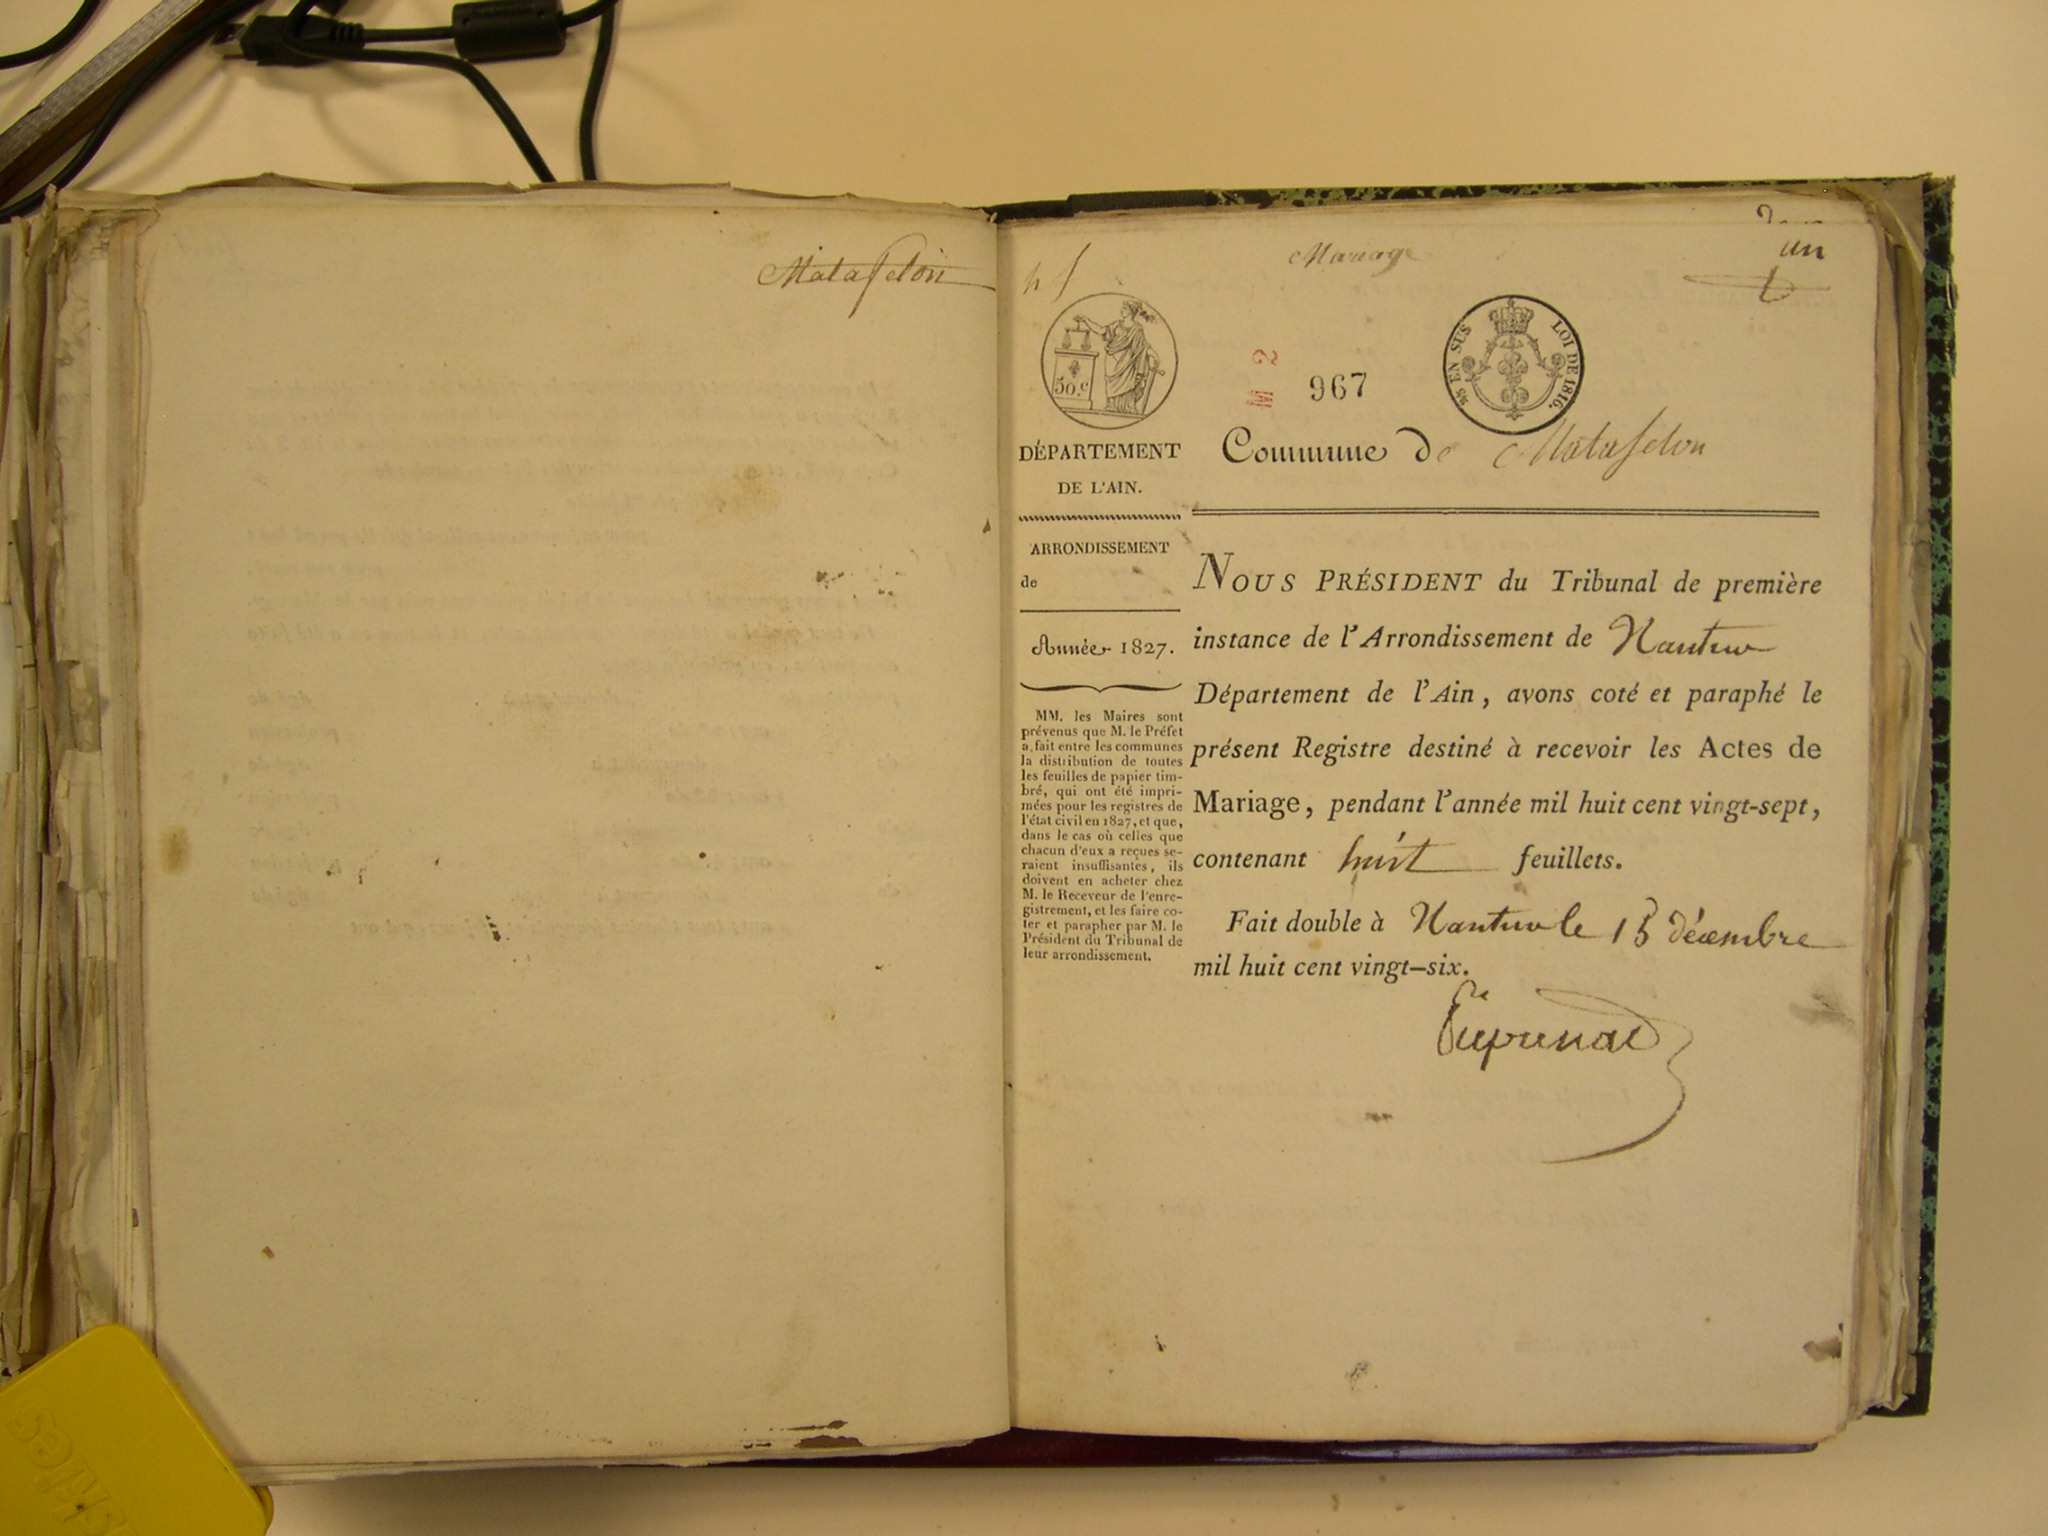 Matafelon
Mariage
un
50.c
EN SUS LOI DE 1816.
M 2
967
DÉPARTEMENT
DE L'AIN.
Commune de Matafelon
ARRONDISSEMENT
de
Année 1827.
MM. les Maires sont
prévenus que M. le Préfet
a fait entre les communes
la distribution de toutes
les feuilles de papier tim-
bré, qui ont été impri-
mées pour les registres de
l'état civil en 1827, et que,
dans le cas où celles que
chacun d'eux a reçues se-
raient insuffisantes, ils
doivent en acheter chez
M. le Receveur de l'enre-
gistrement, et les faire co-
ter et parapher par M. le
Président du Tribunal de
leur arrondissement.
NOUS PRÉSIDENT du Tribunal de première
instance de l'Arrondissement de Nantua
Département de l'Ain, avons coté et paraphé le
présent Registre destiné à recevoir les Actes de
Mariage, pendant l'année mil huit cent vingt-sept,
contenant huit feuillets.
Fait double à Nantua le 15 décembre
mil huit cent vingt-six.